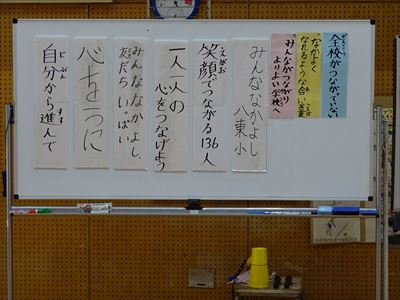 全校がつながっていない
なかよく
なれるような合い言葉
みんながつながり
よりよい学校へ
みんななかよし
八東小
笑顔でつながる136人
えがお
一人一人の
心をつなげよう
みんななかよし、
友だちいっぱい
心を一つに
自分から進んで
じぶん
すす